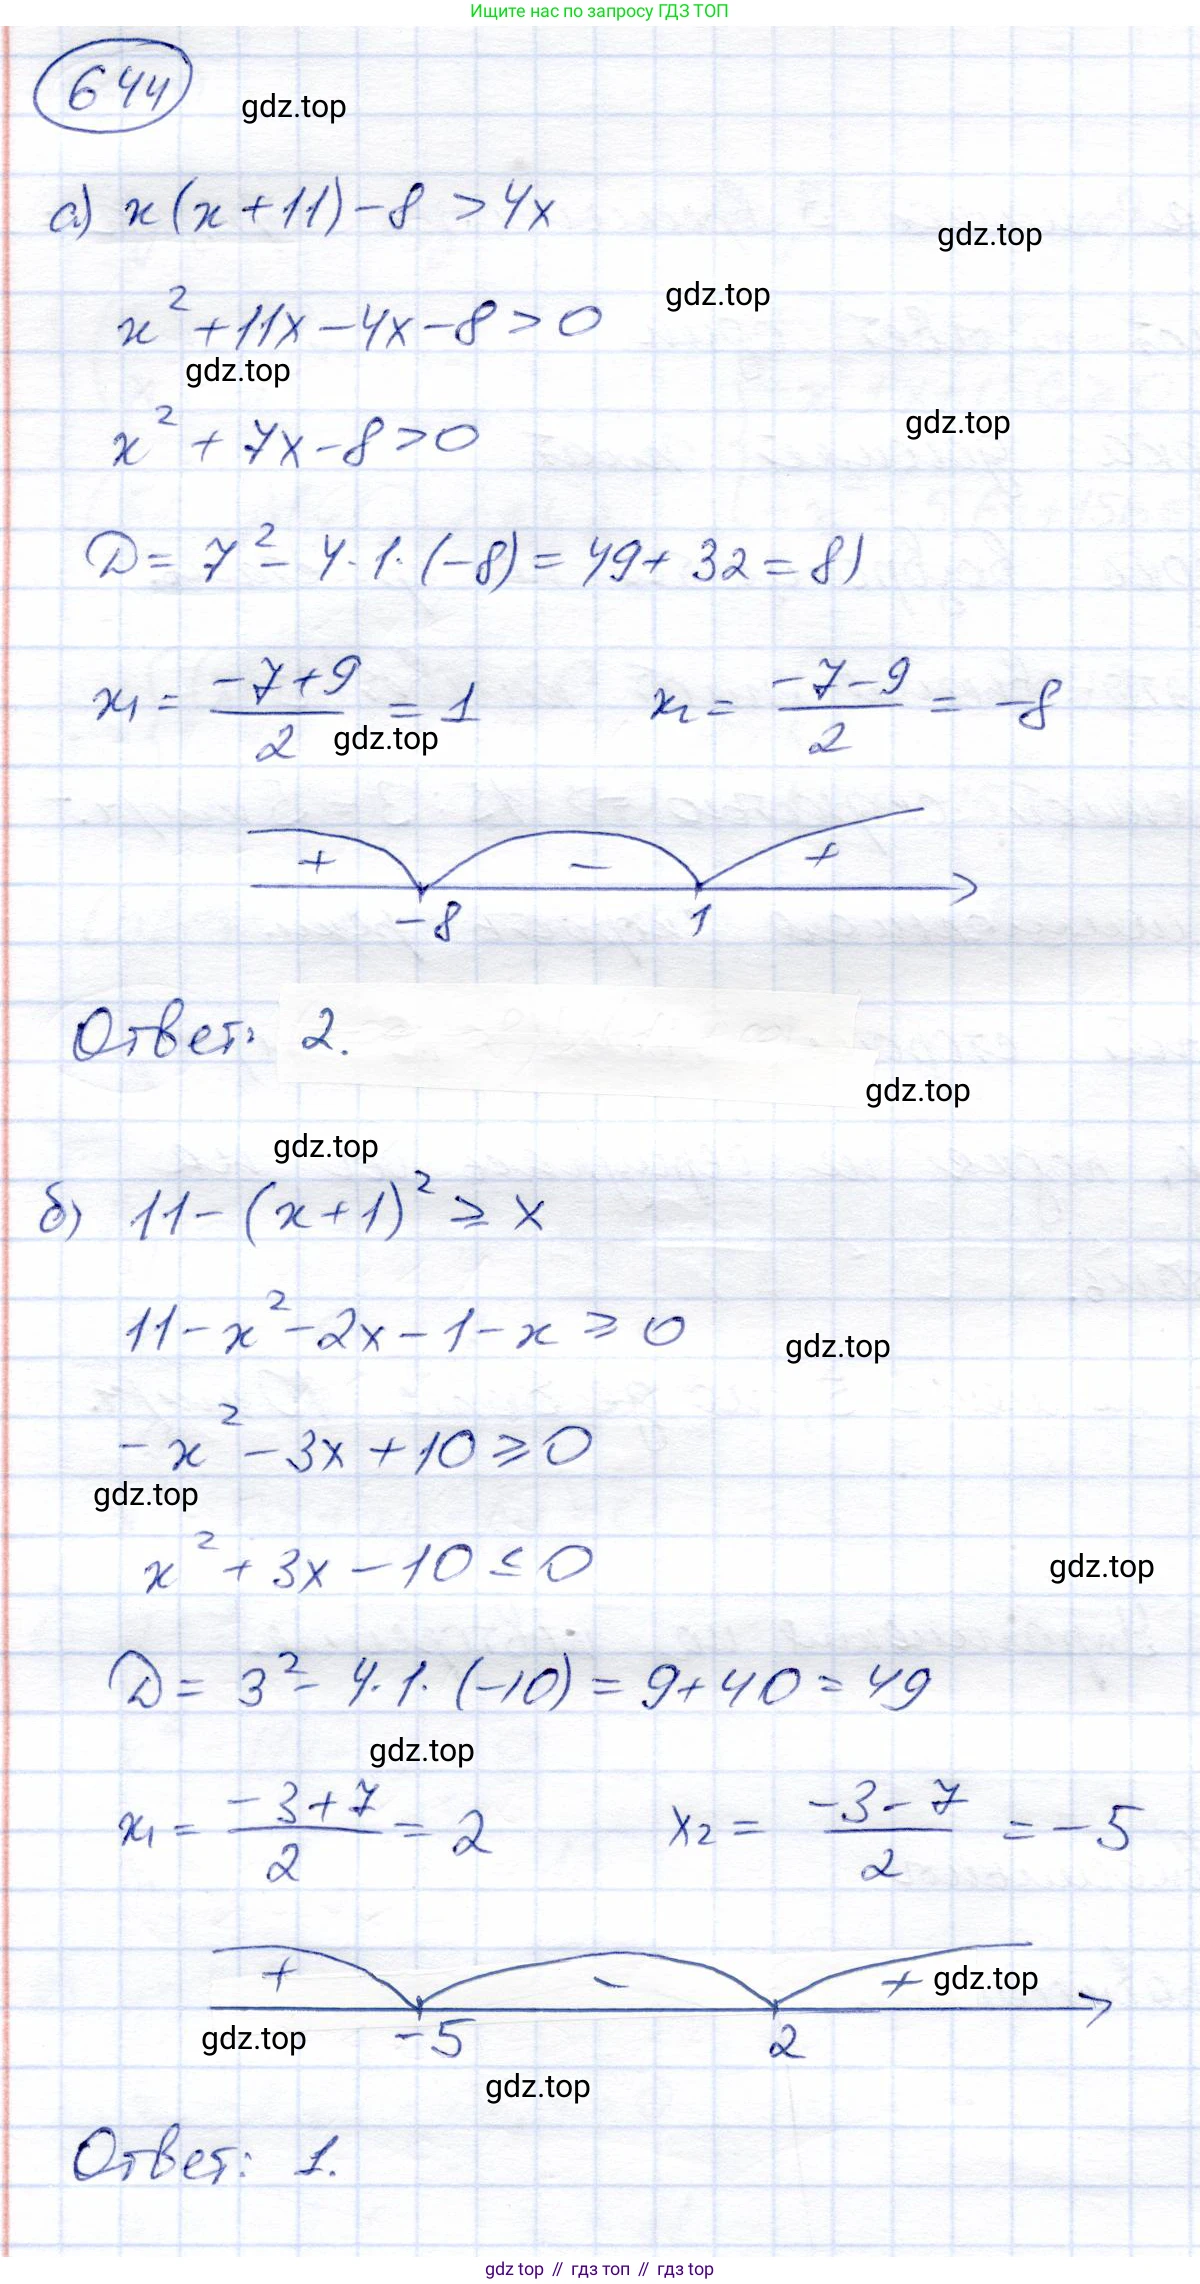 Ищите нас по запросу ГДЗ ТОП
644
gdz.top
а) x(x+11)-8 >4x
gdz.top
gdz.top
x² +11x-4x-8>0
gdz.top
x² + 7x-8>0
gdz.top
D= 7² - 4·1·(-8)=49+32=81
x₁ = (-7+9)/2 = 1 x₂ = (-7-9)/2 = -8
gdz.top
+ - +
-8 1
Ответ: 2.
gdz.top
gdz.top
б) 11-(x+1)² ≥ x
11-x²-2x-1-x ≥ 0
gdz.top
-x²-3x+10≥0
gdz.top
x²+3x-10≤0
gdz.top
D= 3²- 4·1·(-10)=9+40=49
gdz.top
x₁ = (-3+7)/2 = 2 x₂ = (-3-7)/2 = -5
+ - + gdz.top
gdz.top -5 2
gdz.top
Ответ: 1.
gdz top // гдз топ // гдз top